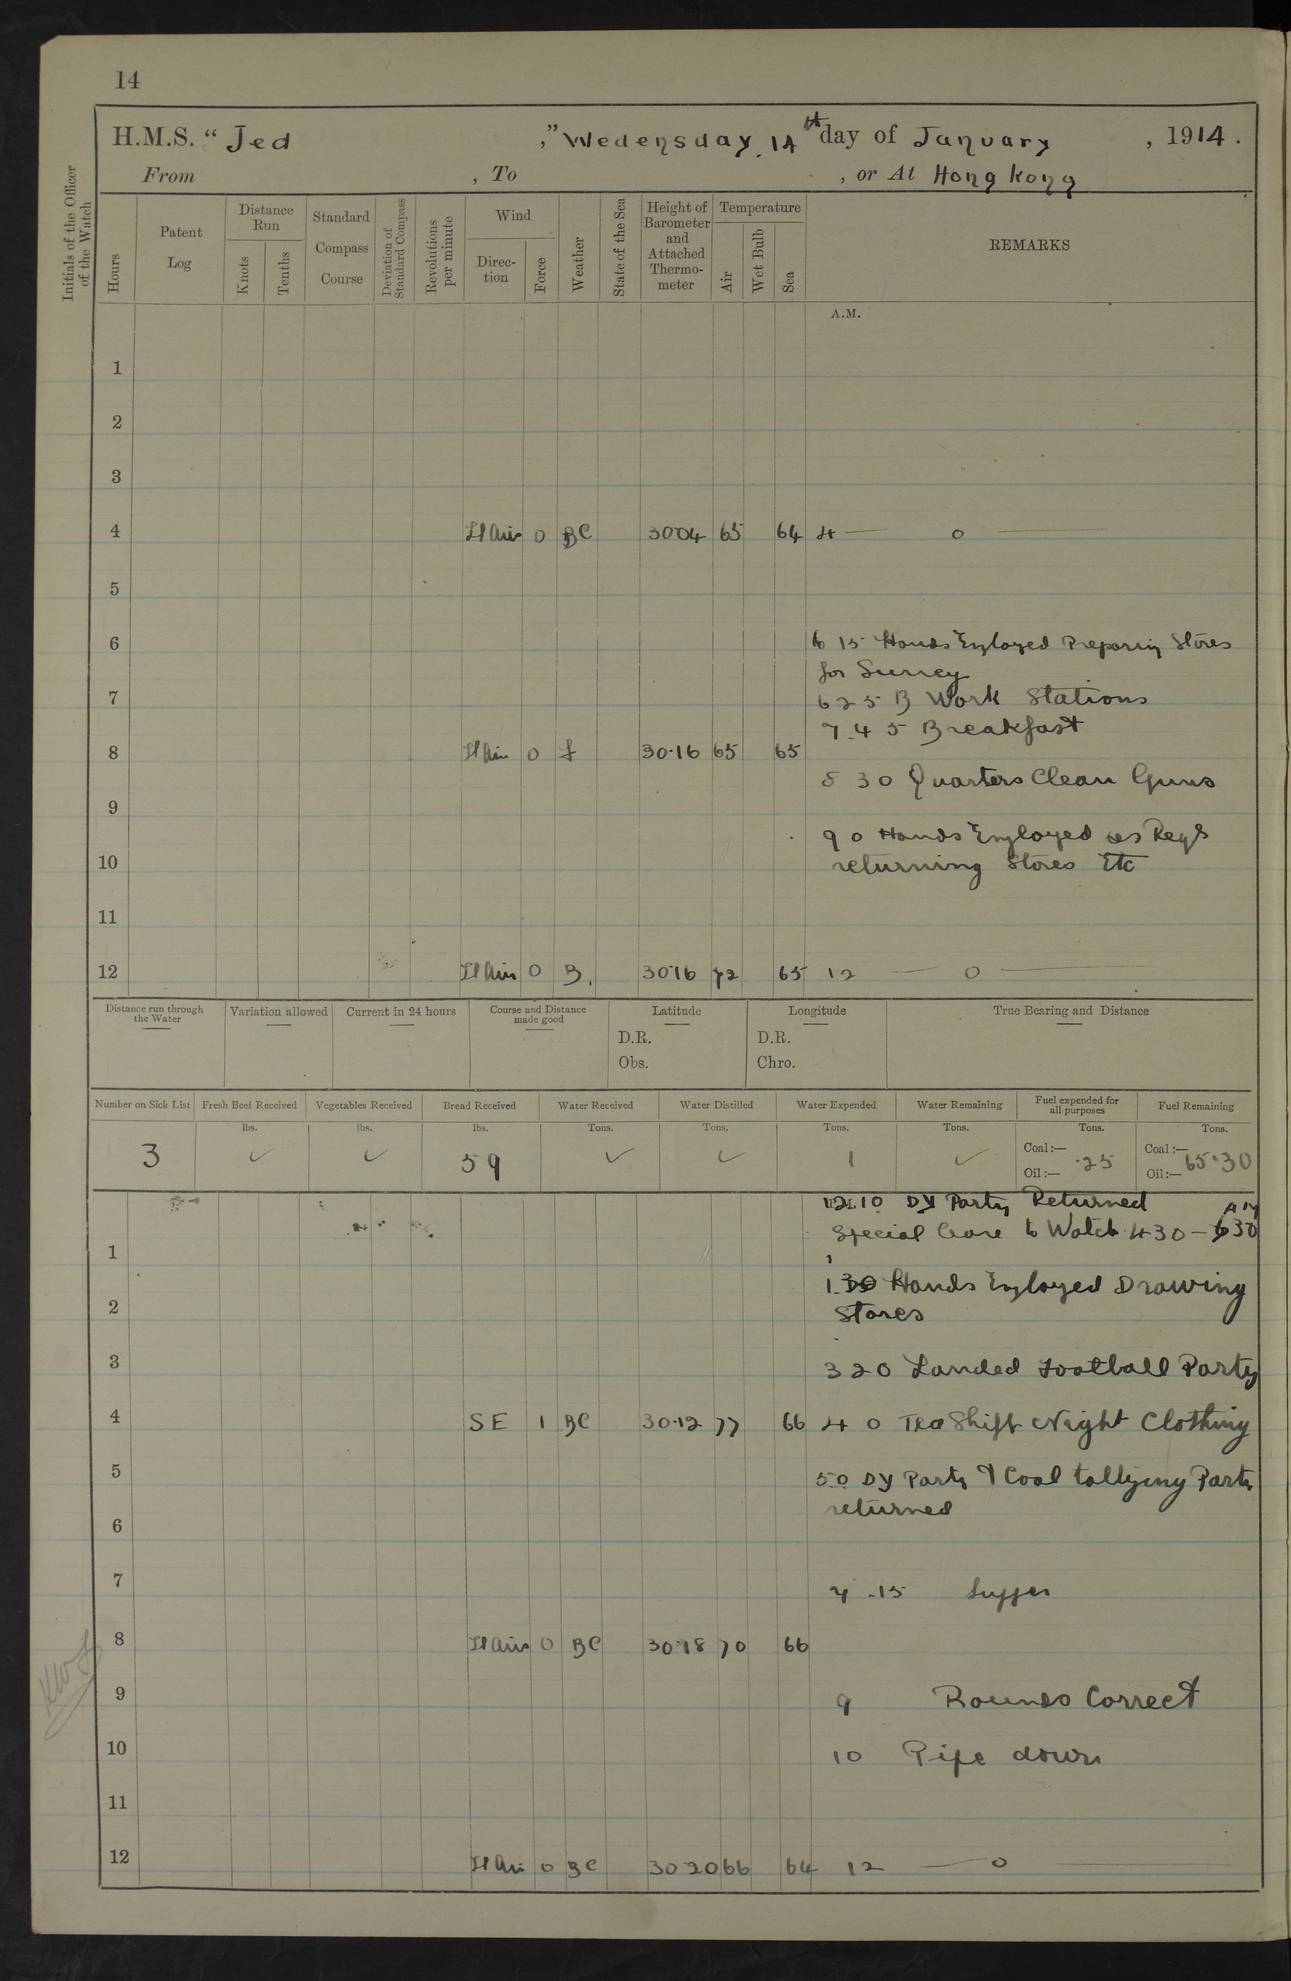 14
H.M.S. "Jed ," Wedensday 14th day of January , 1914.
From , To , or At Hong Kong
Initials of the Officer of the Watch
Hours
Patent Log
Distance Run
Knots
Tenths
Standard Compass Course
Deviation of Standard Compass
Revolutions per minute
Wind
Direction
Force
Weather
State of the Sea
Height of Barometer and Attached Thermometer
Temperature
Air
Wet Bulb
Sea
REMARKS
A.M.
1
2
3
4 Lt Airs 0 BC 30.04 65 64 4 — 0 —
5
6 6 15 Hands Employed Preparing Stores
for Survey
7 6 25 B Work Stations
7.45 Breakfast
8 Lt Air 0 f 30.16 65 65
8 30 Quarters Clean Guns
9
9 0 Hands Employed as Reqd
10 returning Stores Etc
11
12 Lt Airs 0 B. 30.16 72 65 12 — 0 —
Distance run through the Water
Variation allowed
Current in 24 hours
Course and Distance made good
Latitude
D.R.
Obs.
Longitude
D.R.
Chro.
True Bearing and Distance
Number on Sick List
Fresh Beef Received
Vegetables Received
Bread Received
Water Received
Water Distilled
Water Expended
Water Remaining
Fuel expended for all purposes
Fuel Remaining
lbs. lbs. lbs. Tons. Tons. Tons. Tons. Tons. Tons.
3 ✓ ✓ 59 ✓ ✓ 1 ✓ Coal:— Oil:— .25 Coal:— Oil:— 65.30
12.10 DY Party Returned
Special leave to Watch 4 30 – 6 30 AM
1
1.30 Hands Employed Drawing
2 Stores
3 3 20 Landed Football Party
4 SE 1 BC 30.12 77 66 4 0 Tea Shift Night Clothing
5 5.0 DY Party & Coal tallying Party
returned
6
7 7.15 Supper
8 Lt Airs 0 BC 30.18 70 66
9 9 Rounds Correct
10 10 Pipe down
11
12 Lt Air 0 BC 30.20 66 64 12 — 0 —